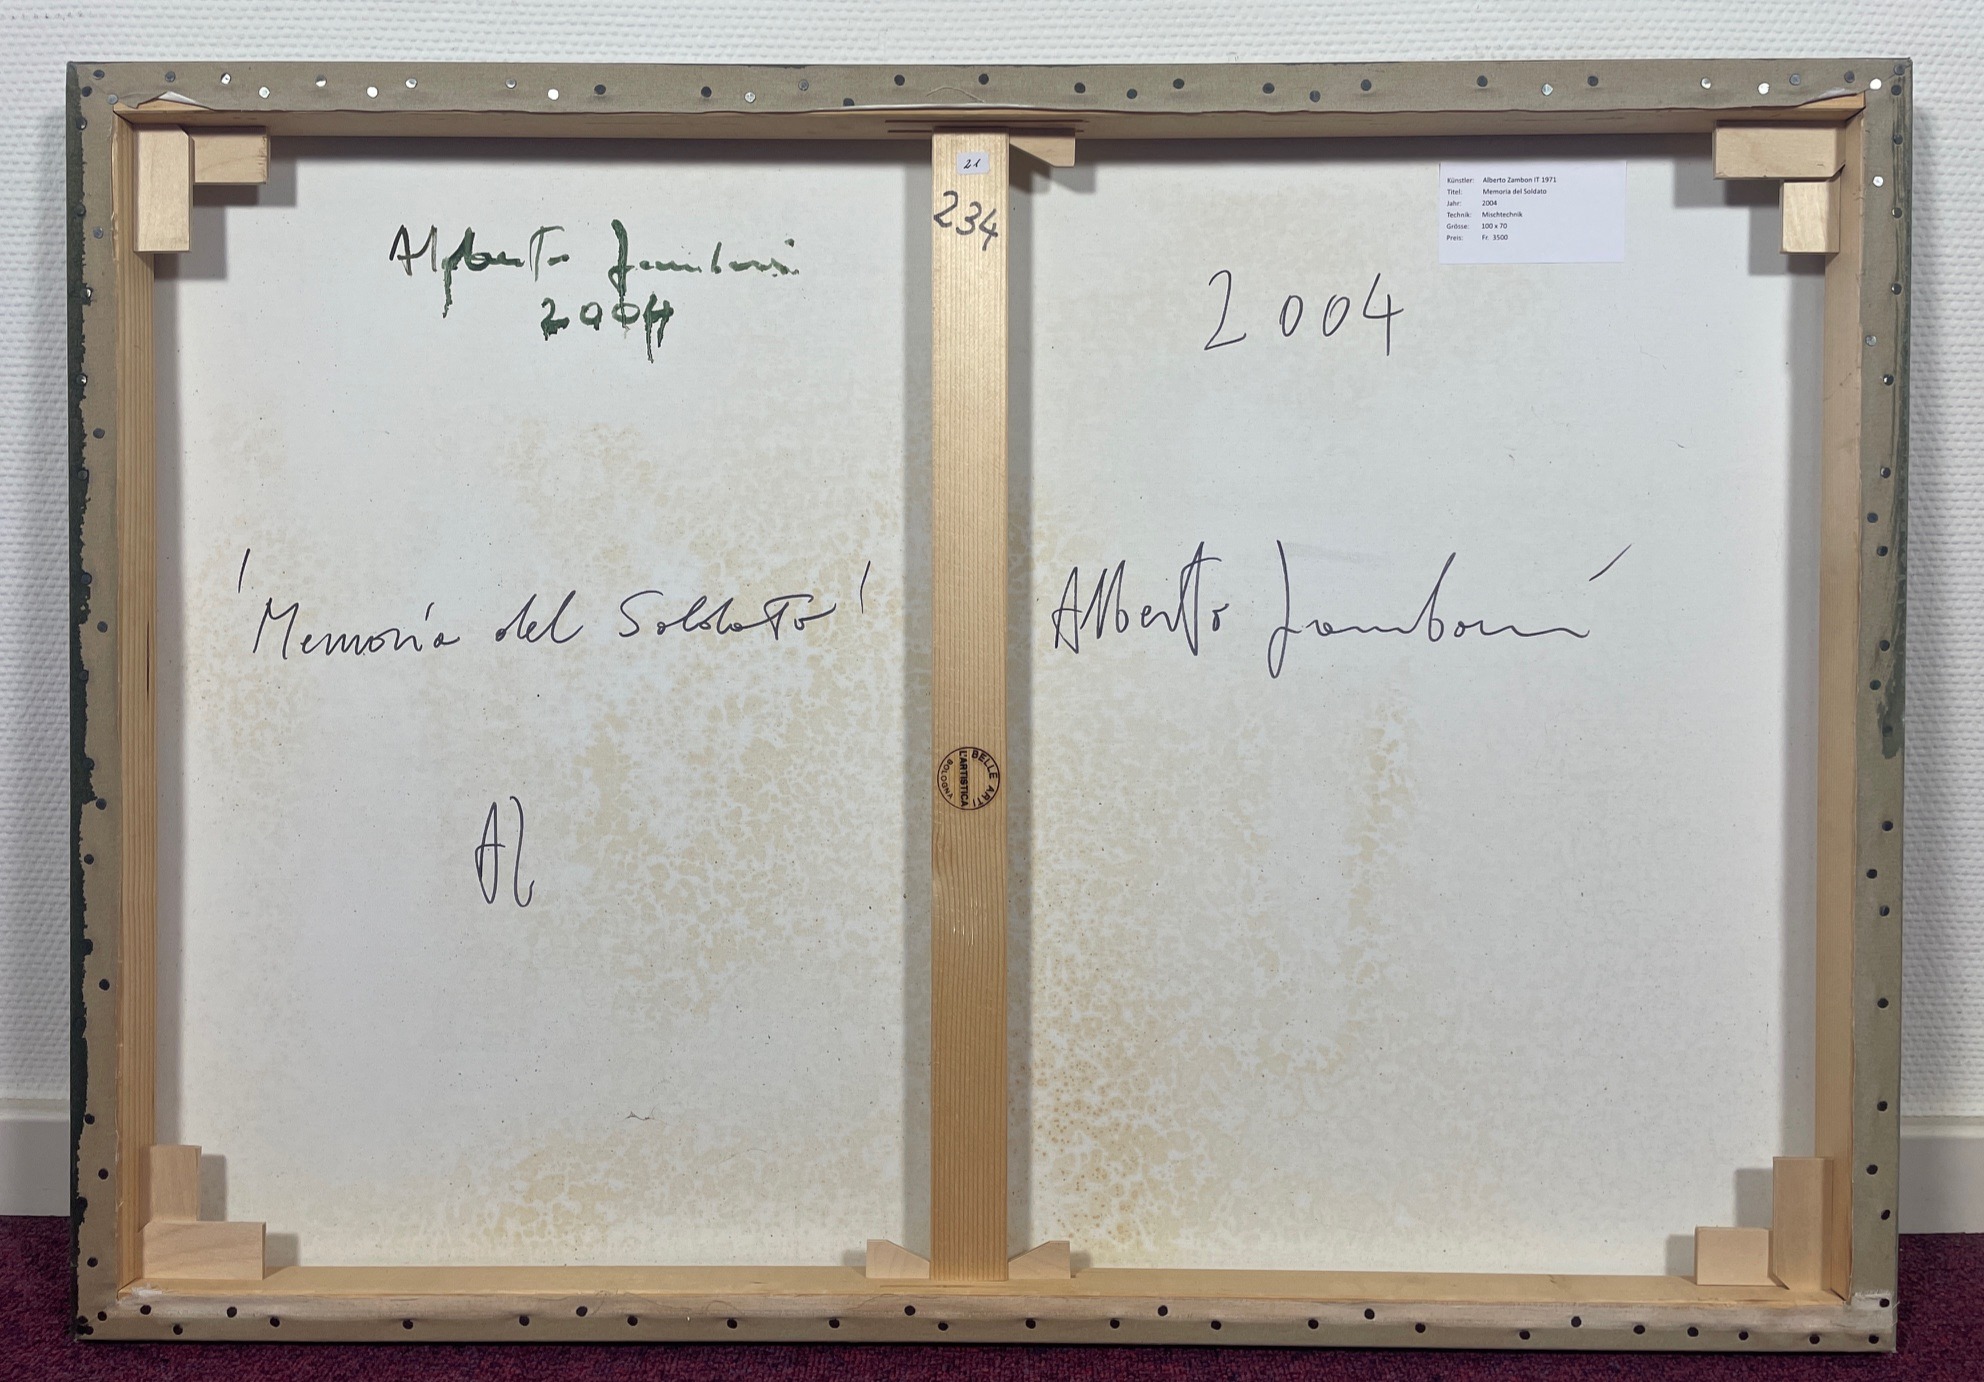 21
234
Künstler: Alberto Zambon IT 1971
Titel: Memoria del Soldato
Jahr: 2004
Technik: Mischtechnik
Grösse: 100 x 70
Preis: Fr. 3500
Alberto Zamboni
2004
2004
'Memoria del Soldato'
Alberto Zamboni
BELLE ARTI
L'ARTISTICA
BOLOGNA
AZ